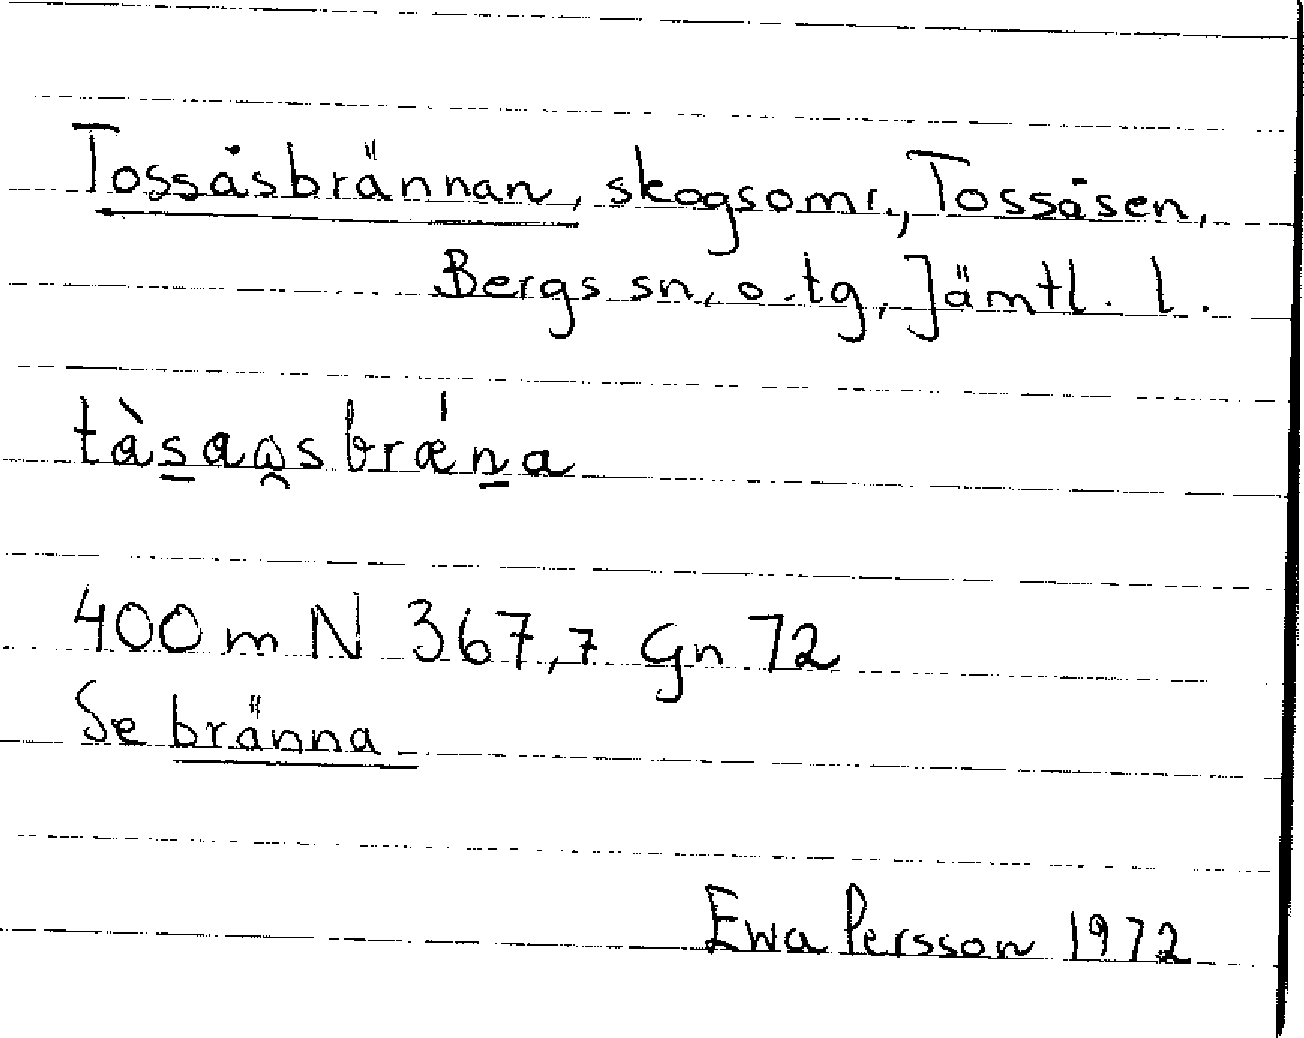 Tossåsbrännan, skogsomr., Tossåsen,
Bergs sn, o. tg, Jämtl. l.
400 m N 367,7 Gn 72
Se bränna
Ewa Persson 1972